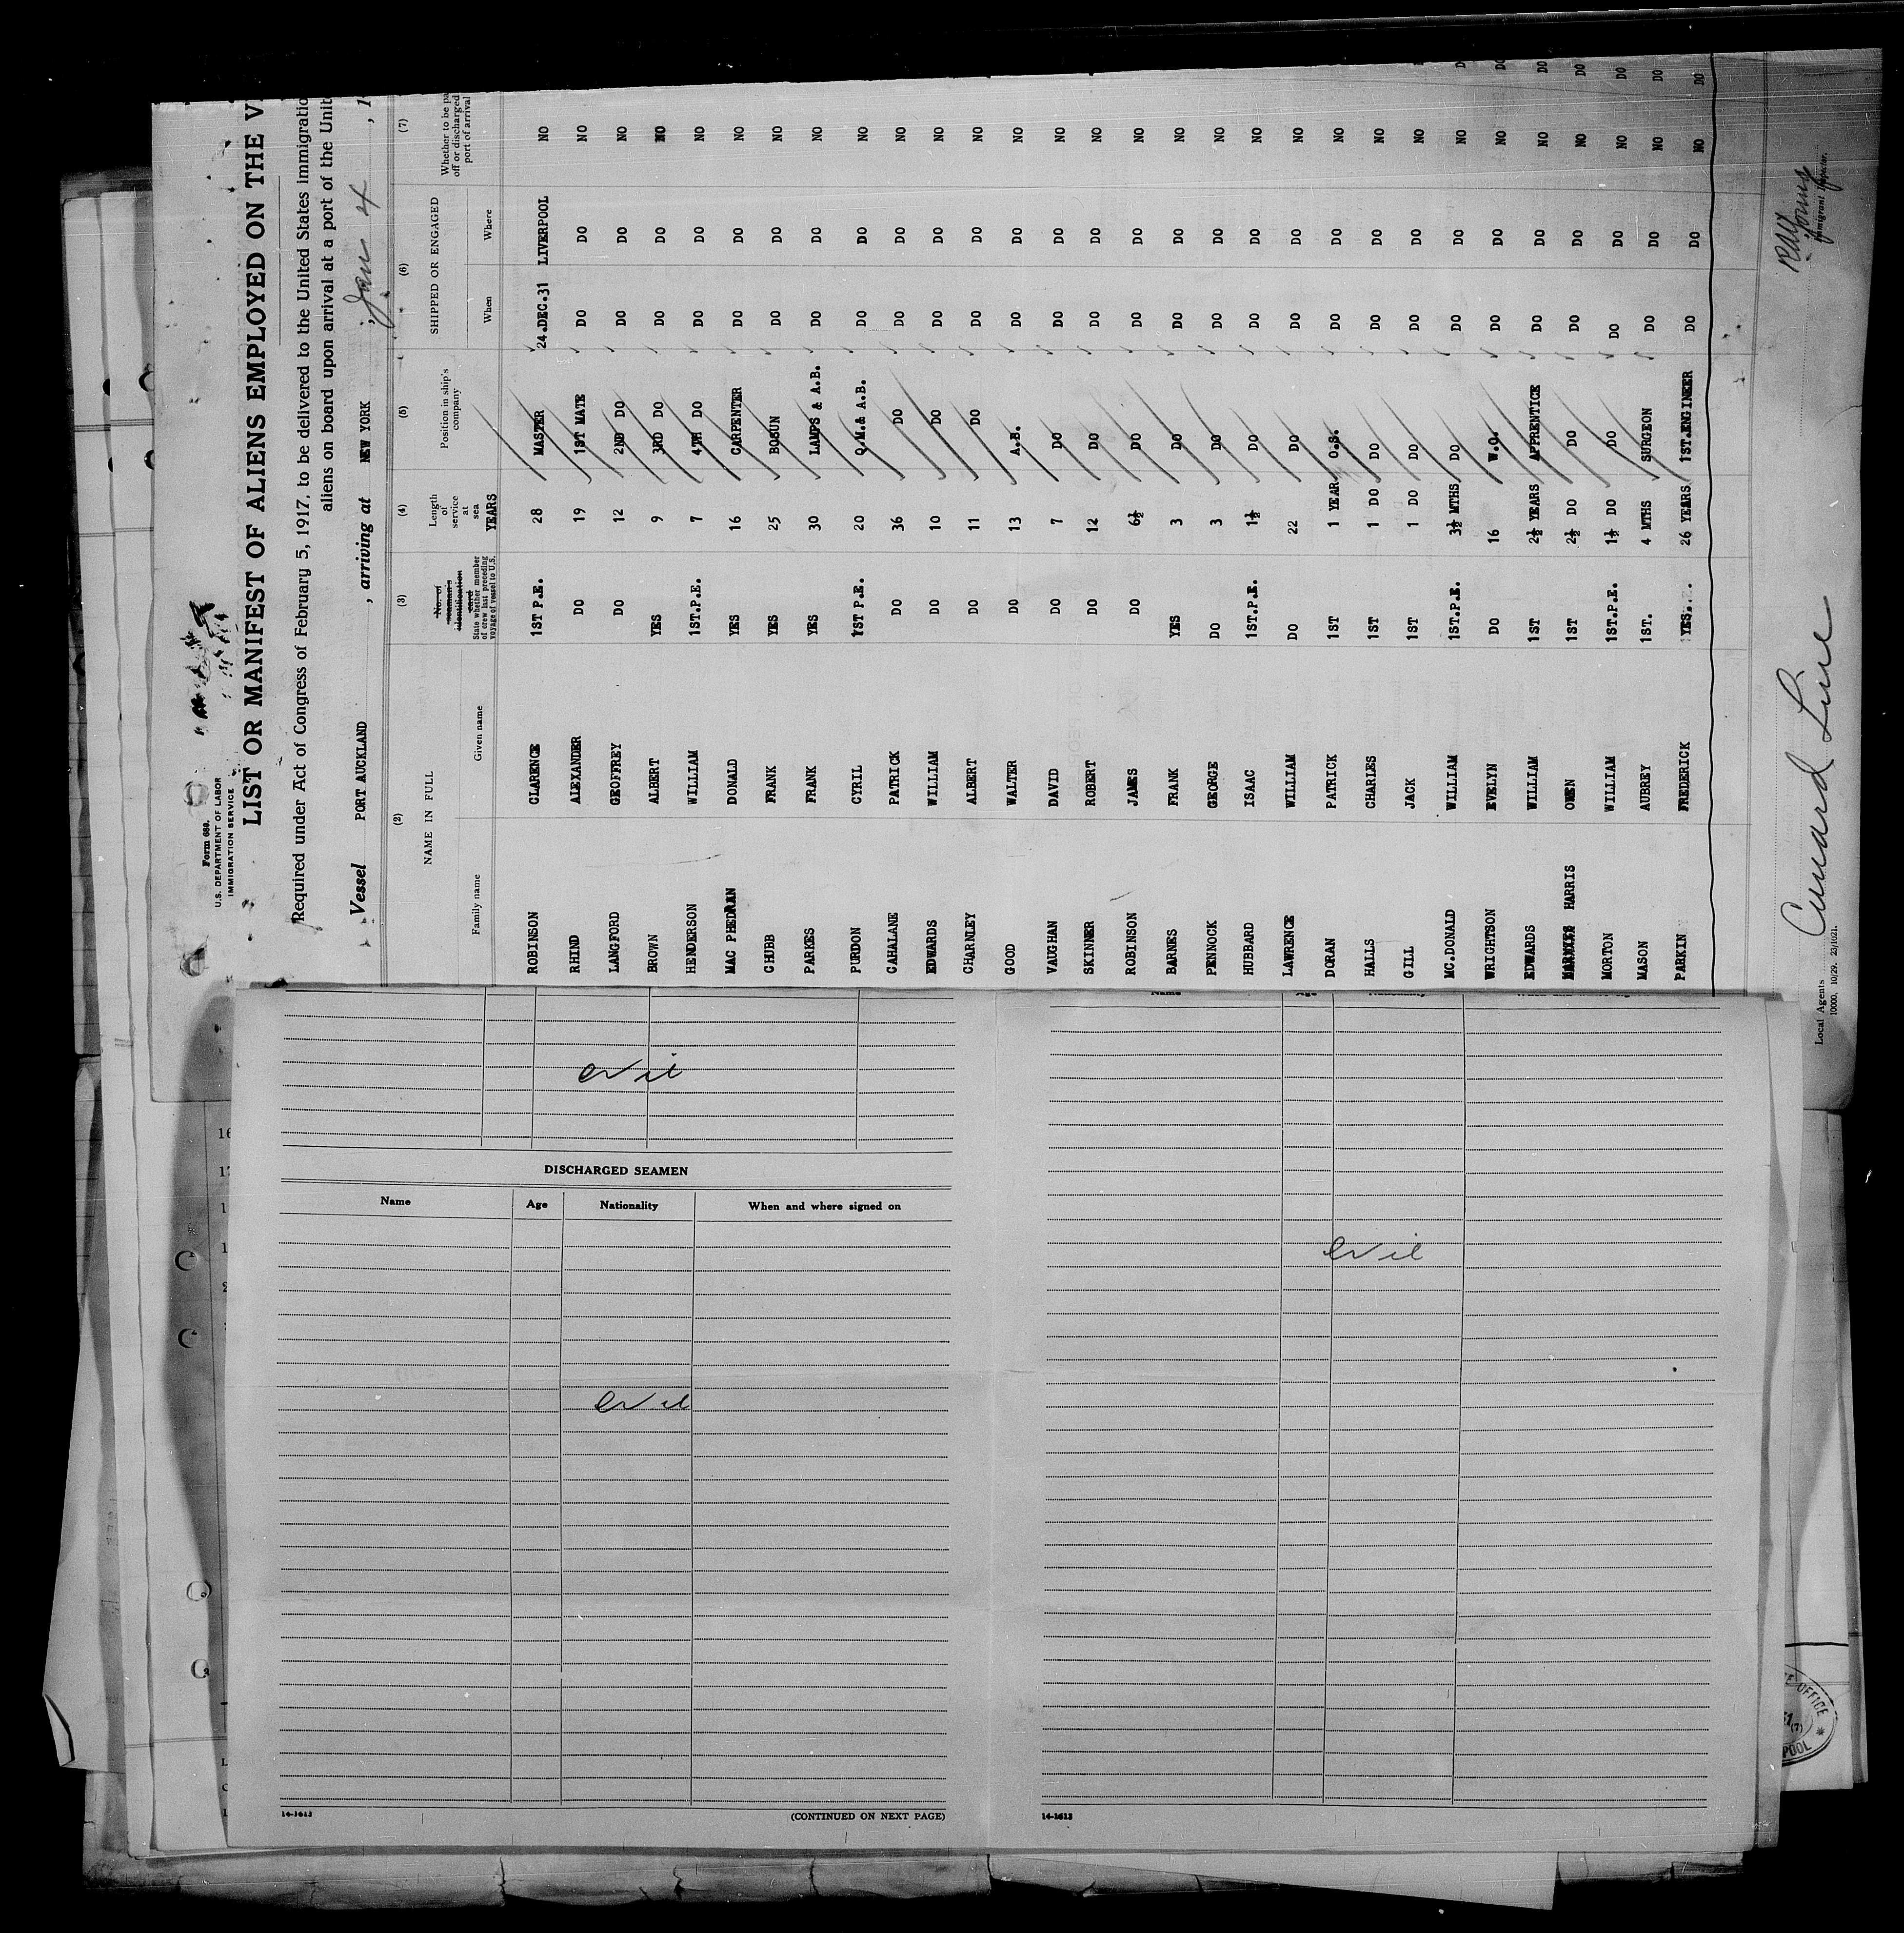 Form 680.
U.S. DEPARTMENT OF LABOR
IMMIGRATION SERVICE
LIST OR MANIFEST OF ALIENS EMPLOYED ON THE
Required under Act of Congress of February 5, 1917, to be delivered to the United States
aliens on board upon arrival at a port of the
Vessel PORT AUCKLAND , arriving at NEW YORK , Jan 4 , 1
(2) (3) (4) (5) (6) (7)
NAME IN FULL No. of seaman's identification card State whether member of crew last preceding voyage of vessel to U.S. Length of service at sea YEARS Position in ship's company SHIPPED OR ENGAGED Whether to be off or discharged port of arrival
Family name Given name When Where
ROBINSON CLARENCE 1ST P.E. 28 MASTER 24.DEC.31 LIVERPOOL NO
RHIND ALEXANDER DO 19 1ST MATE DO DO NO
LANGFORD GEOFFREY DO 12 2ND DO DO DO NO
BROWN ALBERT YES 9 3RD DO DO DO NO
HENDERSON WILLIAM 1ST.P.E. 7 4TH DO DO DO NO
MAC PHEDRAN DONALD YES 16 CARPENTER DO DO NO
CHUBB FRANK YES 25 BOSUN DO DO NO
PARKES FRANK YES 30 LAMPS & A.B. DO DO NO
PURDON CYRIL 1ST P.E. 20 Q.M.& A.B. DO DO NO
CAHALANE PATRICK DO 36 DO DO DO NO
EDWARDS WILLIAM DO 10 DO DO DO NO
CHARNLEY ALBERT DO 11 DO DO DO NO
GOOD WALTER DO 13 A.B. DO DO NO
VAUGHAN DAVID DO 7 DO DO DO NO
SKINNER ROBERT DO 12 DO DO DO NO
ROBINSON JAMES DO 6½ DO DO DO NO
BARNES FRANK YES 3 DO DO DO NO
PENNOCK GEORGE DO 3 DO DO DO NO
HUBBARD ISAAC 1ST.P.E. 1½ DO DO DO NO
LAWRENCE WILLIAM DO 22 DO DO DO NO
DORAN PATRICK 1ST 1 YEAR. O.S. DO DO NO
HALLS CHARLES 1ST 1 DO DO DO DO NO
GILL JACK 1ST 1 DO DO DO DO NO
MC.DONALD WILLIAM 1ST.P.E. 3½ MTHS DO DO DO NO D
WRIGHTSON EVELYN DO 16 W.O. DO DO NO DO
EDWARDS WILLIAM 1ST 2½ YEARS APPRENTICE DO DO NO DO
HARRIS OWEN 1ST 2½ DO DO DO DO NO DO
MORTON WILLIAM 1ST.P.E. 1½ DO DO DO DO NO DO
MASON AUBREY 1ST. 4 MTHS SURGEON DO DO NO DO
PARKIN FREDERICK YES. 26 YEARS 1ST.ENGINEER DO DO NO DO
Immigrant Inspector.
Local Agents Cunard Line
10000. 10/29. 23/1021.
DISCHARGED SEAMEN
Name Age Nationality When and where signed on
14-1613 (CONTINUED ON NEXT PAGE)
Name Age Nationality
14-1613
16
OFFICE
POOL